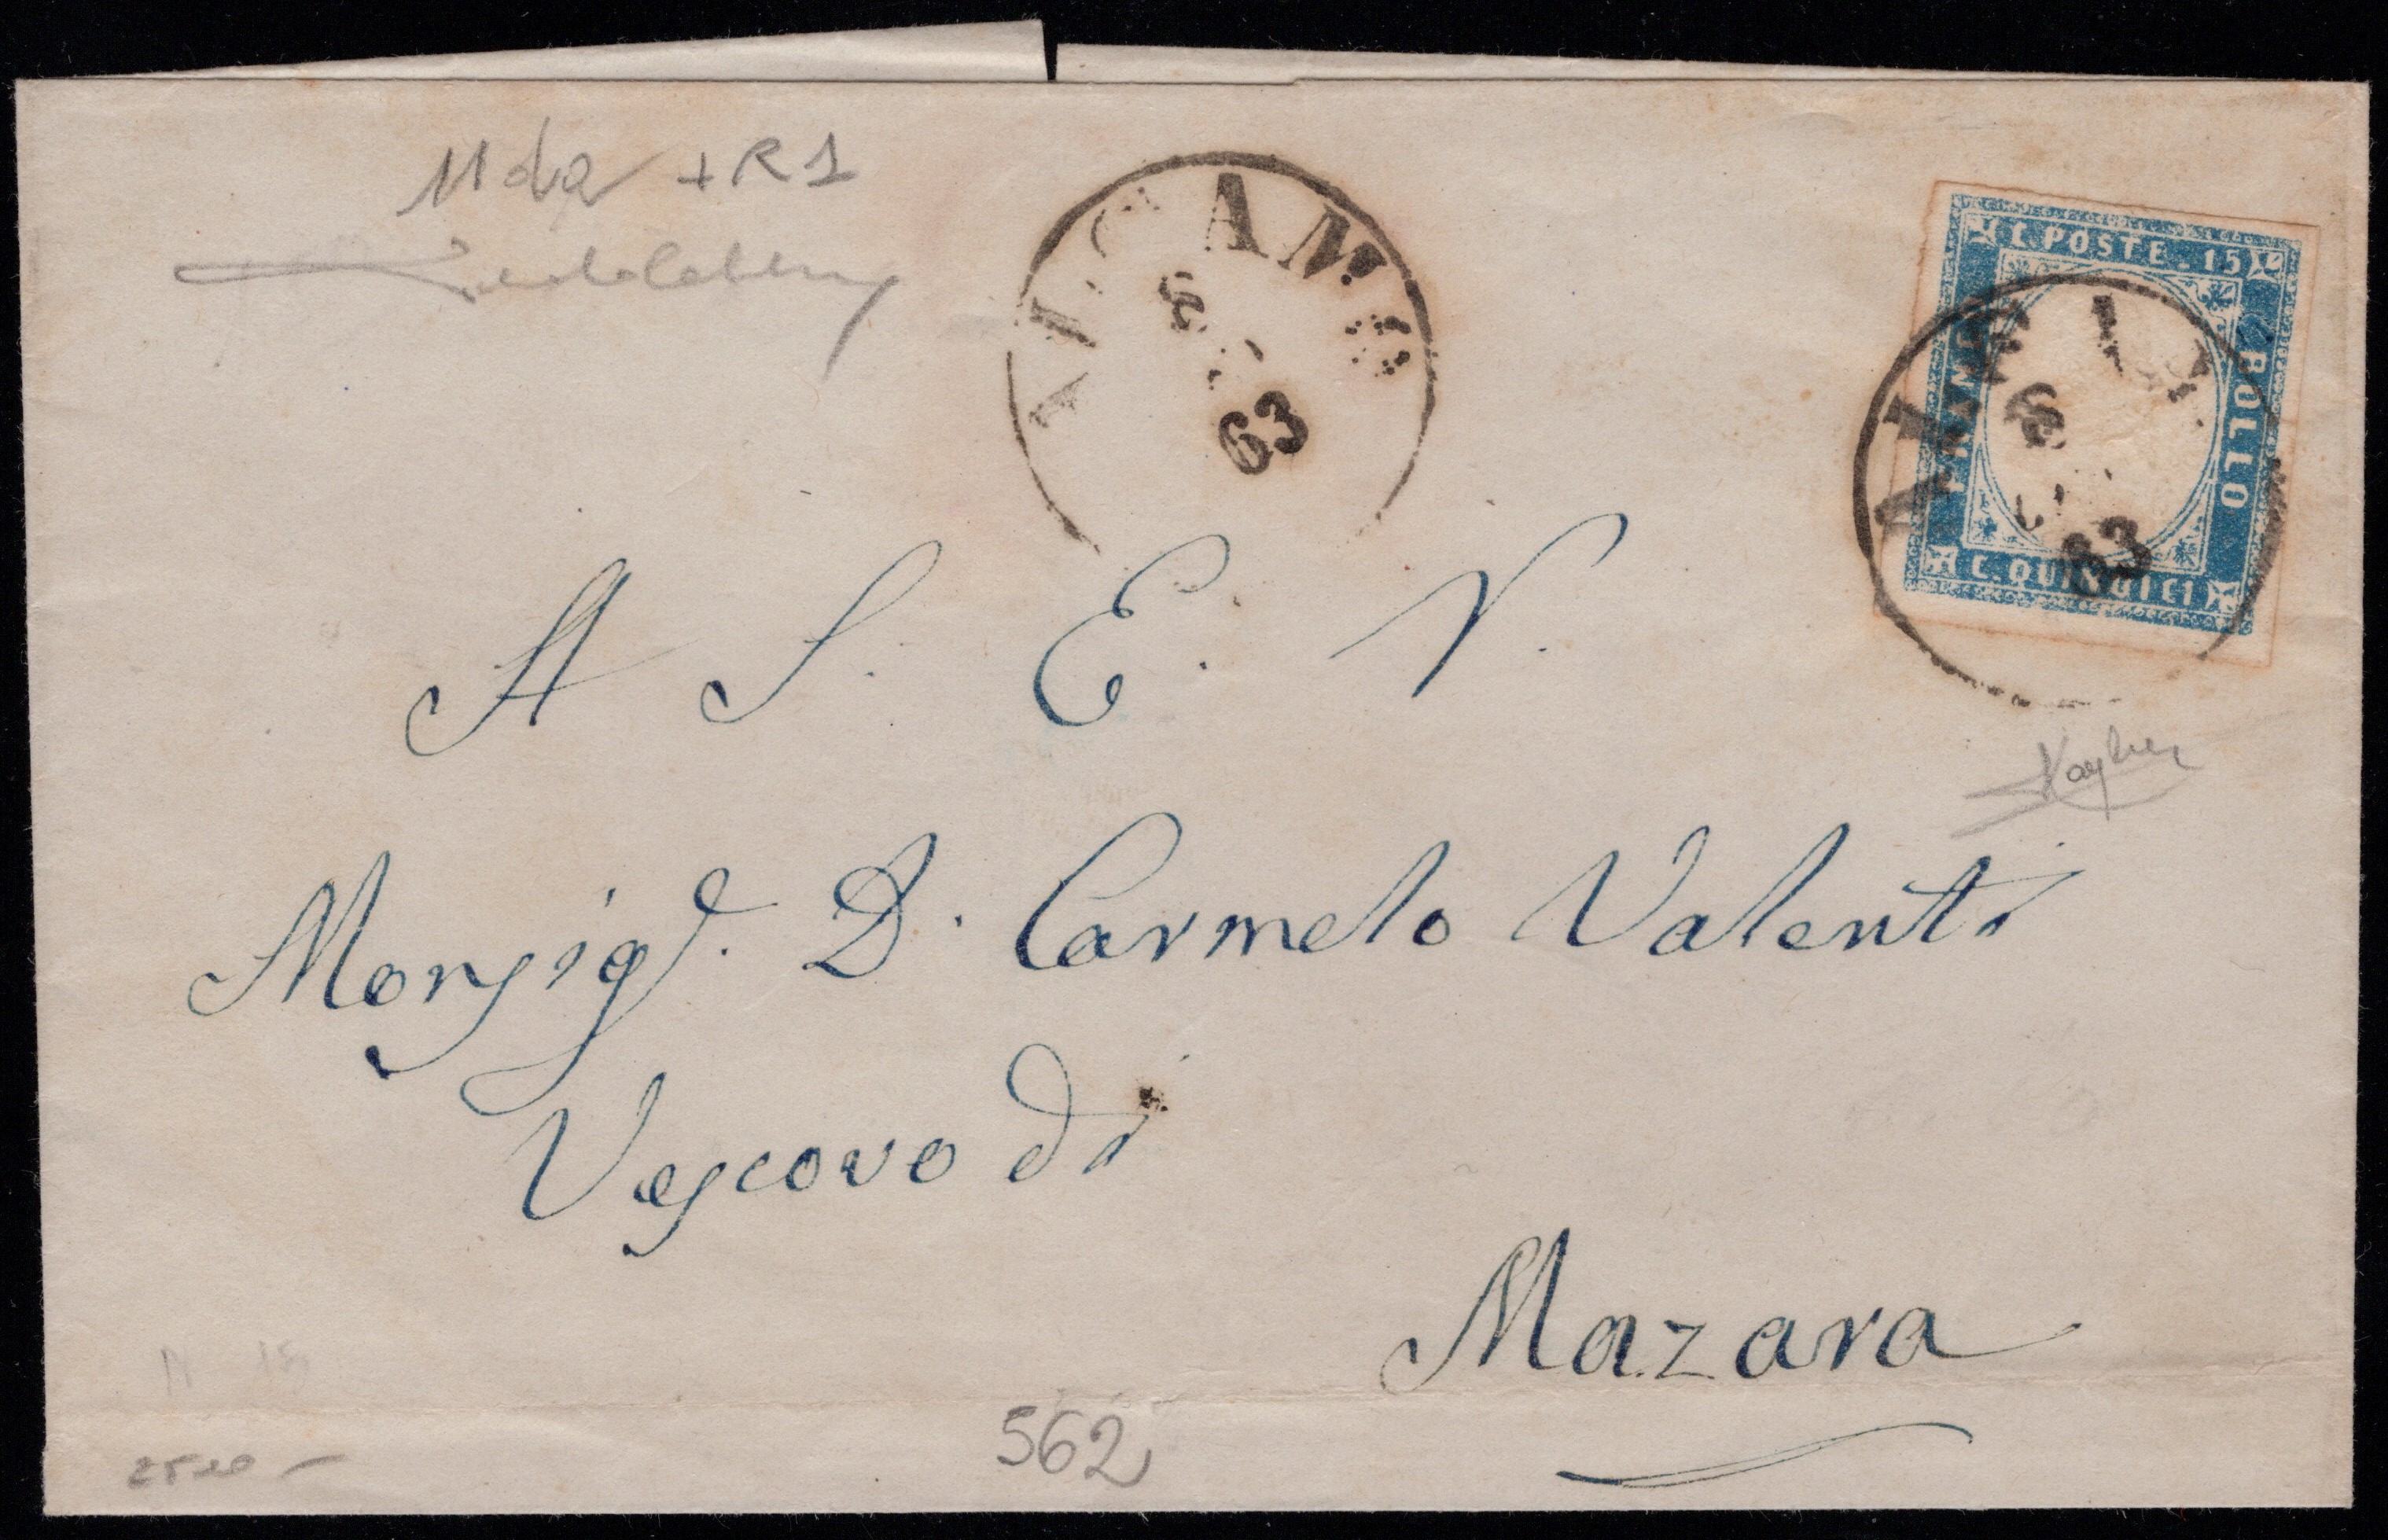 11 da + R1
ALCAMO
63
C. POSTE. 15
FRANCO
BOLLO
C. QUINDICI
63
A S. E. R.
Monsig.r D. Carmelo Valenti
Vescovo di
Mazara
562